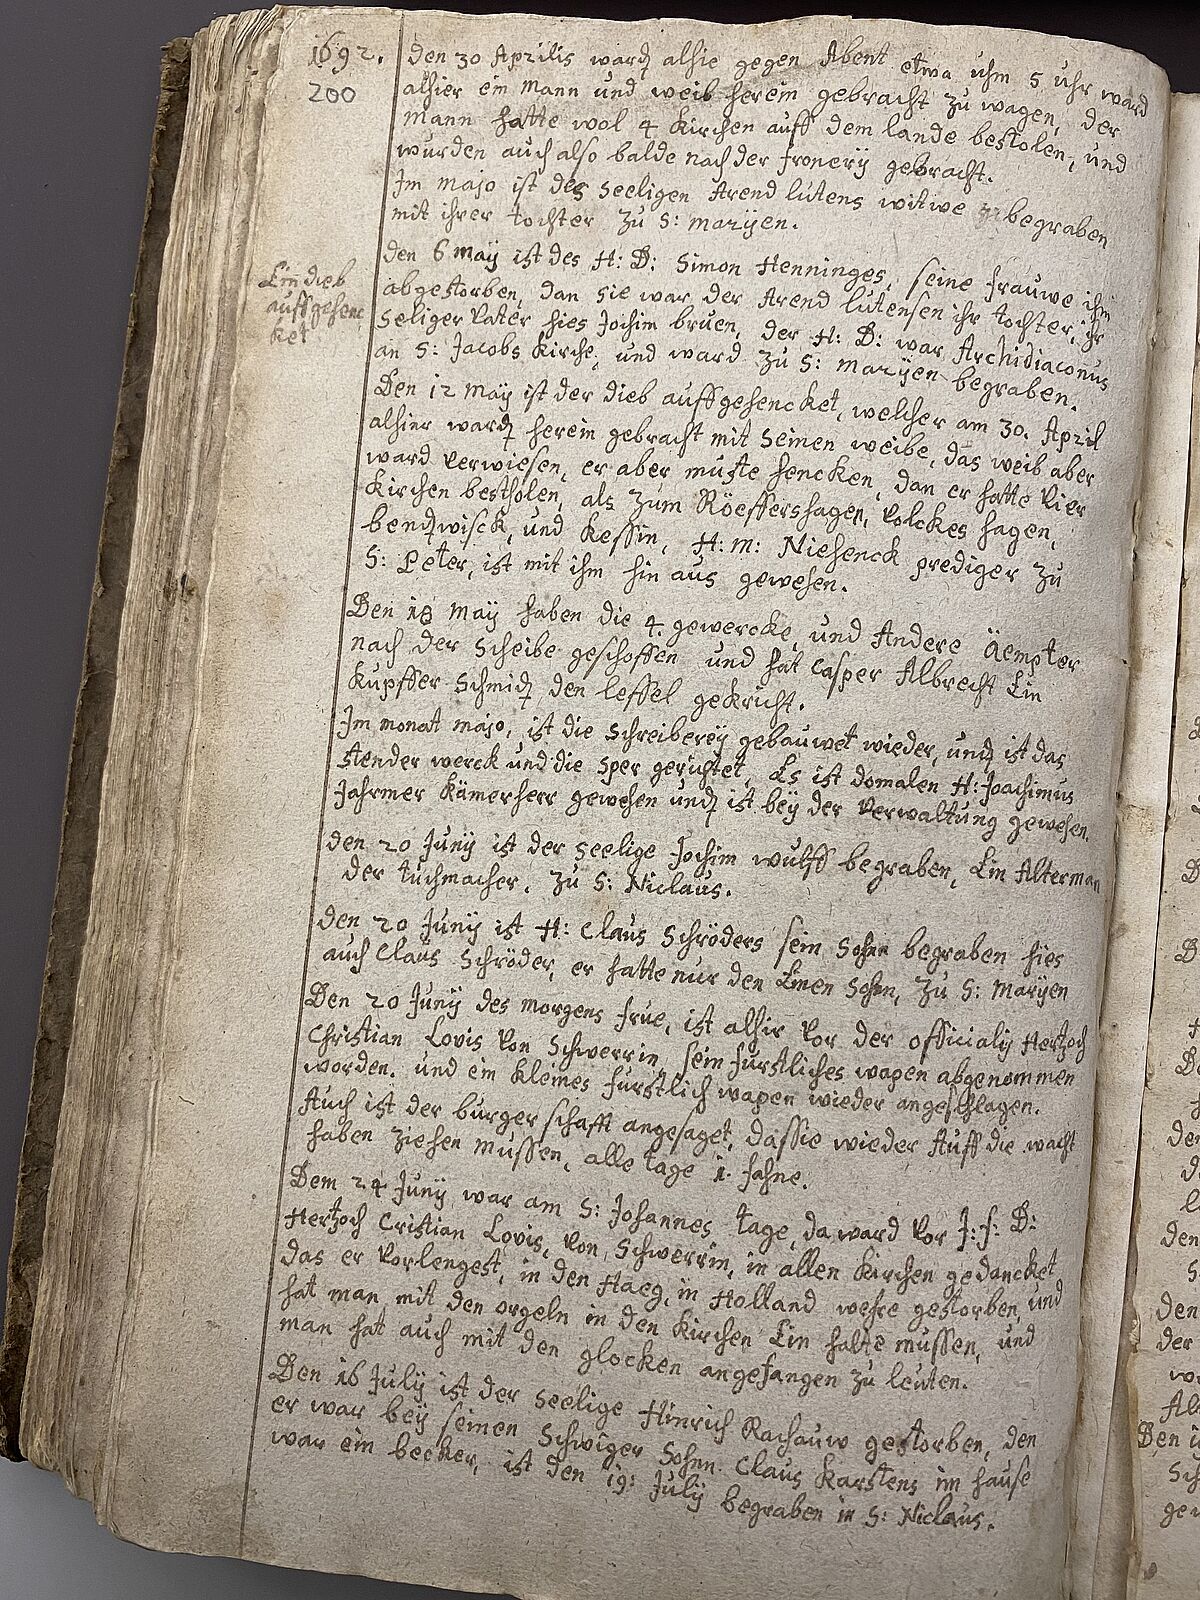 1692.
200
den 30 Aprilis ward alhie gegen Abent etwa uhm 5 uhr ward
alhier ein Mann und weib herein gebracht zu wagen, der
Mann hatte wol 4 Kirchen auff dem lande bestolen, und
wurden auch also balde nach der froneryÿ gebracht.
Im majo ist des Seeligen Arend lutens witwe begraben
mit ihrer tochter zu S: marÿen.
den 6 maÿ ist des H: D: Simon Henninges, seine frauwe ihm
abgestorben, dan sie war der Arend lutensen ihr tochter, ihr
Seliger Vater hies Jochim bruen, der H: D: war Archidiaconus
an S: Jacobs Kirche, und ward zu S: marÿen begraben.
Ein dieb
auffgehenc
ket
Den 12 maÿ ist der dieb auffgehencket, welcher am 30. April
alhier ward herein gebracht mit seinen weibe, das weib aber
ward verwiesen, er aber muste hencken, dan er hatte vier
Kirchen bestholen, als zum Röeffershagen, volckes hagen,
bendwisck, und Kessin, H: m: Niehenck prediger zu
S: Peter, ist mit ihm hin aus gewesen.
Den 18 maÿ haben die 4. gewercke, und Andere Äempter
nach der Scheibe geschossen und hat Casper Albrecht Ein
Kupffer Schmid den leffel gekricht.
Im monat majo, ist die Schreibereÿ gebauwet wieder, und ist das
stender werck und die Sper gerichtet, Es ist domalen H: Joachimus
Jahrmer Kämerherr gewesen und ist beÿ der verwaltung gewesen.
den 20 Junÿ ist der seelige Jochim wulff begraben, Ein Alterman
der tuchmacher. zu S: Niclaus.
den 20 Junÿ ist H: Claus Schröders sein Sohn begraben hies
auch Claus Schröder, er hatte nur den Einen Sohn, zu S: Marÿen
Den 20 Junÿ des morgens frue, ist alhir vor der officialÿ Hertzoch
Christian Lovis von Schwerrin, sein furstliches wapen abgenommen
worden. und ein kleines furstlich wapen wieder angeschlagen.
Auch ist der burger schafft angesaget, das sie wieder Auff die wacht
haben ziehen mussen, alle tage 1. fahne.
Dem 24 Junÿ war am S: Johannes tage, da ward vor J: f: D:
Hertzoch Cristian Lovis, von Schwerrin, in allen Kirchen gedancket
das er vorlengest, in den Haeg, in Holland wehre gestorben, und
hat man mit den orgeln in den Kirchen Ein halte mussen, und
man hat auch mit den glocken angefangen zu leuten.
Den 16 Julÿ ist der seelige Hinrich Rachauw gestorben, den
er war beÿ seinen Schwiger Sohnn Claus Karstens im hause
war ein becker, ist den 19: Julÿ begraben in S: Niclaus.